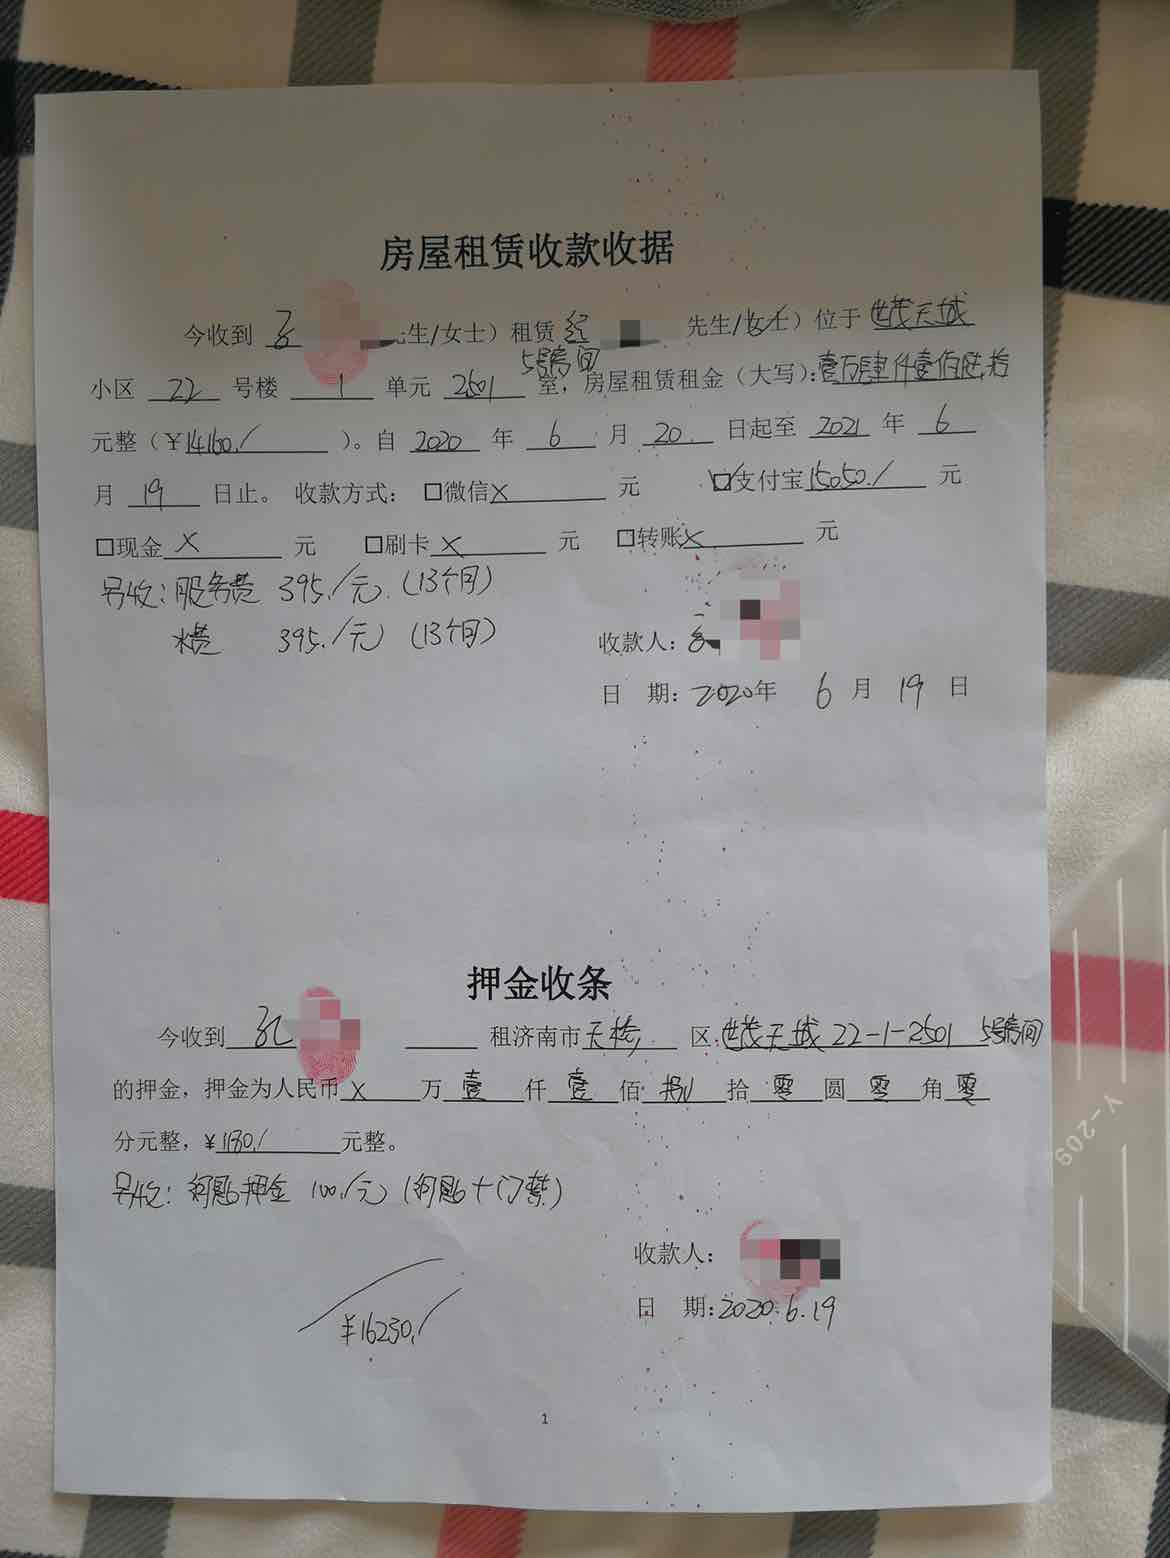 房屋租赁收款收据
今收到 孔 先生/女士）租赁 纪 先生/女士）位于 世茂天城
小区 22 号楼 1 单元 2501 5号房间 室，房屋租赁租金（大写）：壹万肆仟壹佰陆拾
元整（￥14160./ ）。自 2020 年 6 月 20 日起至 2021 年 6
月 19 日止。收款方式：□微信 X 元 ☑支付宝 15050./ 元
□现金 X 元 □刷卡 X 元 □转账 X 元
另收：服务费 395./元（13个月）
水费 395./元（13个月）
收款人：
日 期：2020年 6 月 19 日
押金收条
今收到 孔 租济南市 天桥 区：世茂天城 22-1-2501 5号房间
的押金，押金为人民币 X 万 壹 仟 壹 佰 捌 拾 零 圆 零 角 零
分元整，￥1180./ 元整。
另收：钥匙押金 100./元（钥匙+门禁）
收款人：
日 期：2020.6.19
￥16230./
1
Y-209